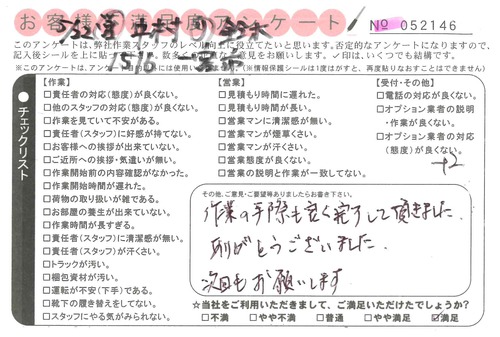 お客様不満足度アンケート
No 052146
このアンケートは、弊社作業スタッフのレベル向上に役立てたいと思います。否定的なアンケートになりますので、
記入後シールを上に貼って下さい。数多くの貴重な意見をお願いします。✓印は、いくつでも結構です。
【作業】
□責任者の対応(態度)が良くない。
□他のスタッフの対応(態度)が良くない。
□作業を見ていて不安がある。
□責任者(スタッフ)に好感が持てない。
□お客様への挨拶が出来ていない。
□ご近所への挨拶・気遣いが無い。
□作業開始前の内容確認がなかった。
□作業開始時間が遅れた。
□荷物の取り扱いが雑である。
□お部屋の養生が出来ていない。
□作業時間が長すぎる。
□責任者(スタッフ)に清潔感が無い。
□責任者(スタッフ)が汗くさい。
□トラックが汚い。
□梱包資材が汚い。
□運転が不安(下手)である。
□靴下の履き替えをしてない。
□スタッフにやる気がみられない。
【営業】
□見積もり時間に遅れた。
□見積もり時間が長い。
□営業マンに清潔感が無い。
□営業マンが煙草くさい。
□営業マンが汗くさい。
□営業態度が良くない。
□営業の説明と作業が一致してない。
【受付・その他】
□電話の対応が良くない。
□オプション業者の説明
・作業が良くない。
□オプション業者の対応
(態度)が良くない。
チェックリスト
その他、ご意見・ご要望等ありましたらお書き下さい。
作業の手際も良く完了して頂きました。
ありがとうございました。
次回もお願いします
☆当社をご利用いただきまして、ご満足いただけたでしょうか?
□不満 □やや不満 □普通 □やや満足 ☑満足